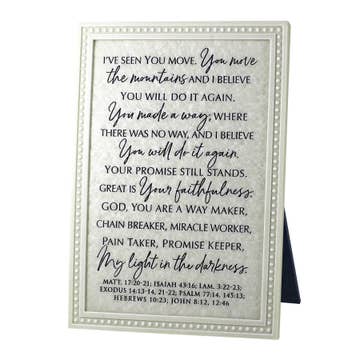 I'VE SEEN YOU MOVE. You move
the mountains AND I BELIEVE
YOU WILL DO IT AGAIN.
You made a way, WHERE
THERE WAS NO WAY, AND I BELIEVE
You will do it again.
YOUR PROMISE STILL STANDS.
GREAT IS Your faithfulness.
GOD, YOU ARE A WAY MAKER,
CHAIN BREAKER, MIRACLE WORKER,
PAIN TAKER, PROMISE KEEPER,
My light in the darkness.
MATT. 17:20-21; ISAIAH 43:16; LAM. 3:22-23;
EXODUS 14:13-14, 21-22; PSALM 77:14, 145:13;
HEBREWS 10:23; JOHN 8:12, 12:46